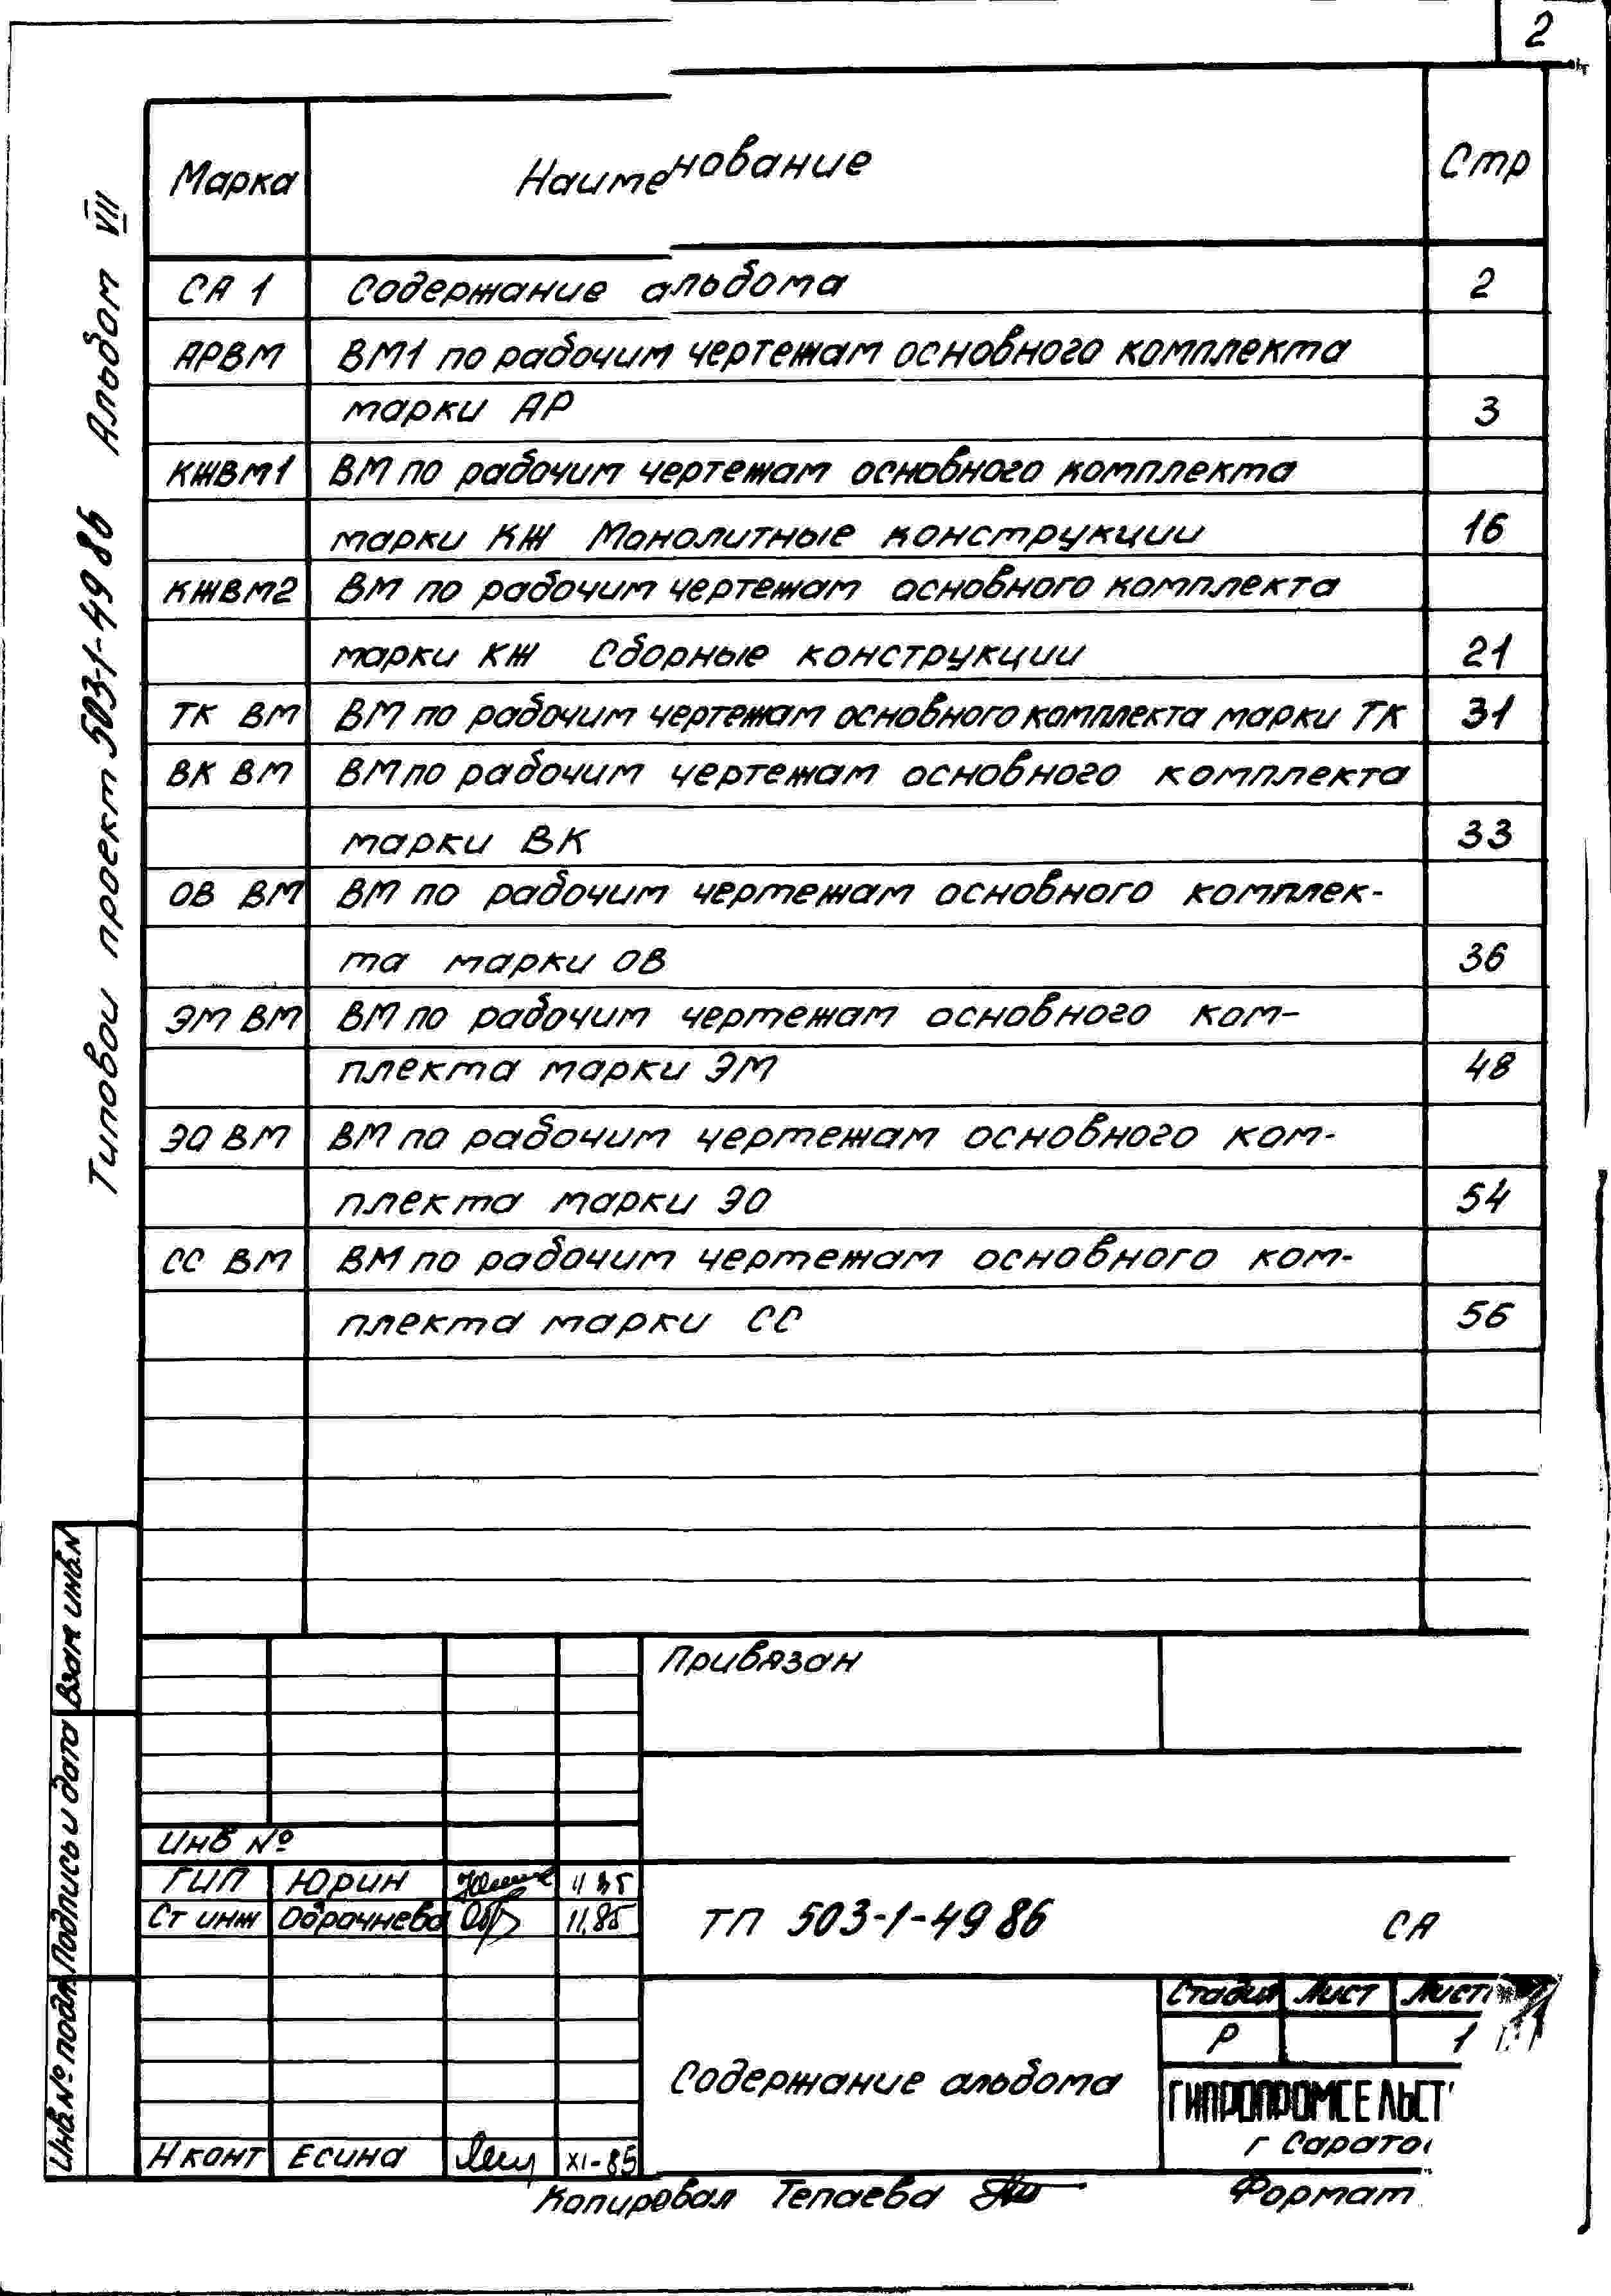 2
Марка Наименование Стр
СА 1 Содержание альбома 2
АРВМ ВМ1 по рабочим чертежам основного комплекта
марки АР 3
КЖВМ1 ВМ по рабочим чертежам основного комплекта
марки КЖ Монолитные конструкции 16
КЖВМ2 ВМ по рабочим чертежам основного комплекта
марки КЖ Сборные конструкции 21
ТК ВМ ВМ по рабочим чертежам основного комплекта марки ТК 31
ВК ВМ ВМ по рабочим чертежам основного комплекта
марки ВК 33
ОВ ВМ ВМ по рабочим чертежам основного комплек-
та марки ОВ 36
ЭМ ВМ ВМ по рабочим чертежам основного ком-
плекта марки ЭМ 48
ЭО ВМ ВМ по рабочим чертежам основного ком-
плекта марки ЭО 54
СС ВМ ВМ по рабочим чертежам основного ком-
плекта марки СС 56
Типовой проект 503-1-49 86 Альбом VII
Взам инв.N
Подпись и дата
Инв.№ подл
Привязан
Инв №
ГИП Юрин
Ст инж Обрачнева 11.85
ТП 503-1-49 86 СА
Стадия Лист
Р 1
Содержание альбома
ГИПРОПРОМСЕЛЬСТ
г Сарато
Н контр Есина XI-85
Копировал Тепаева Формат